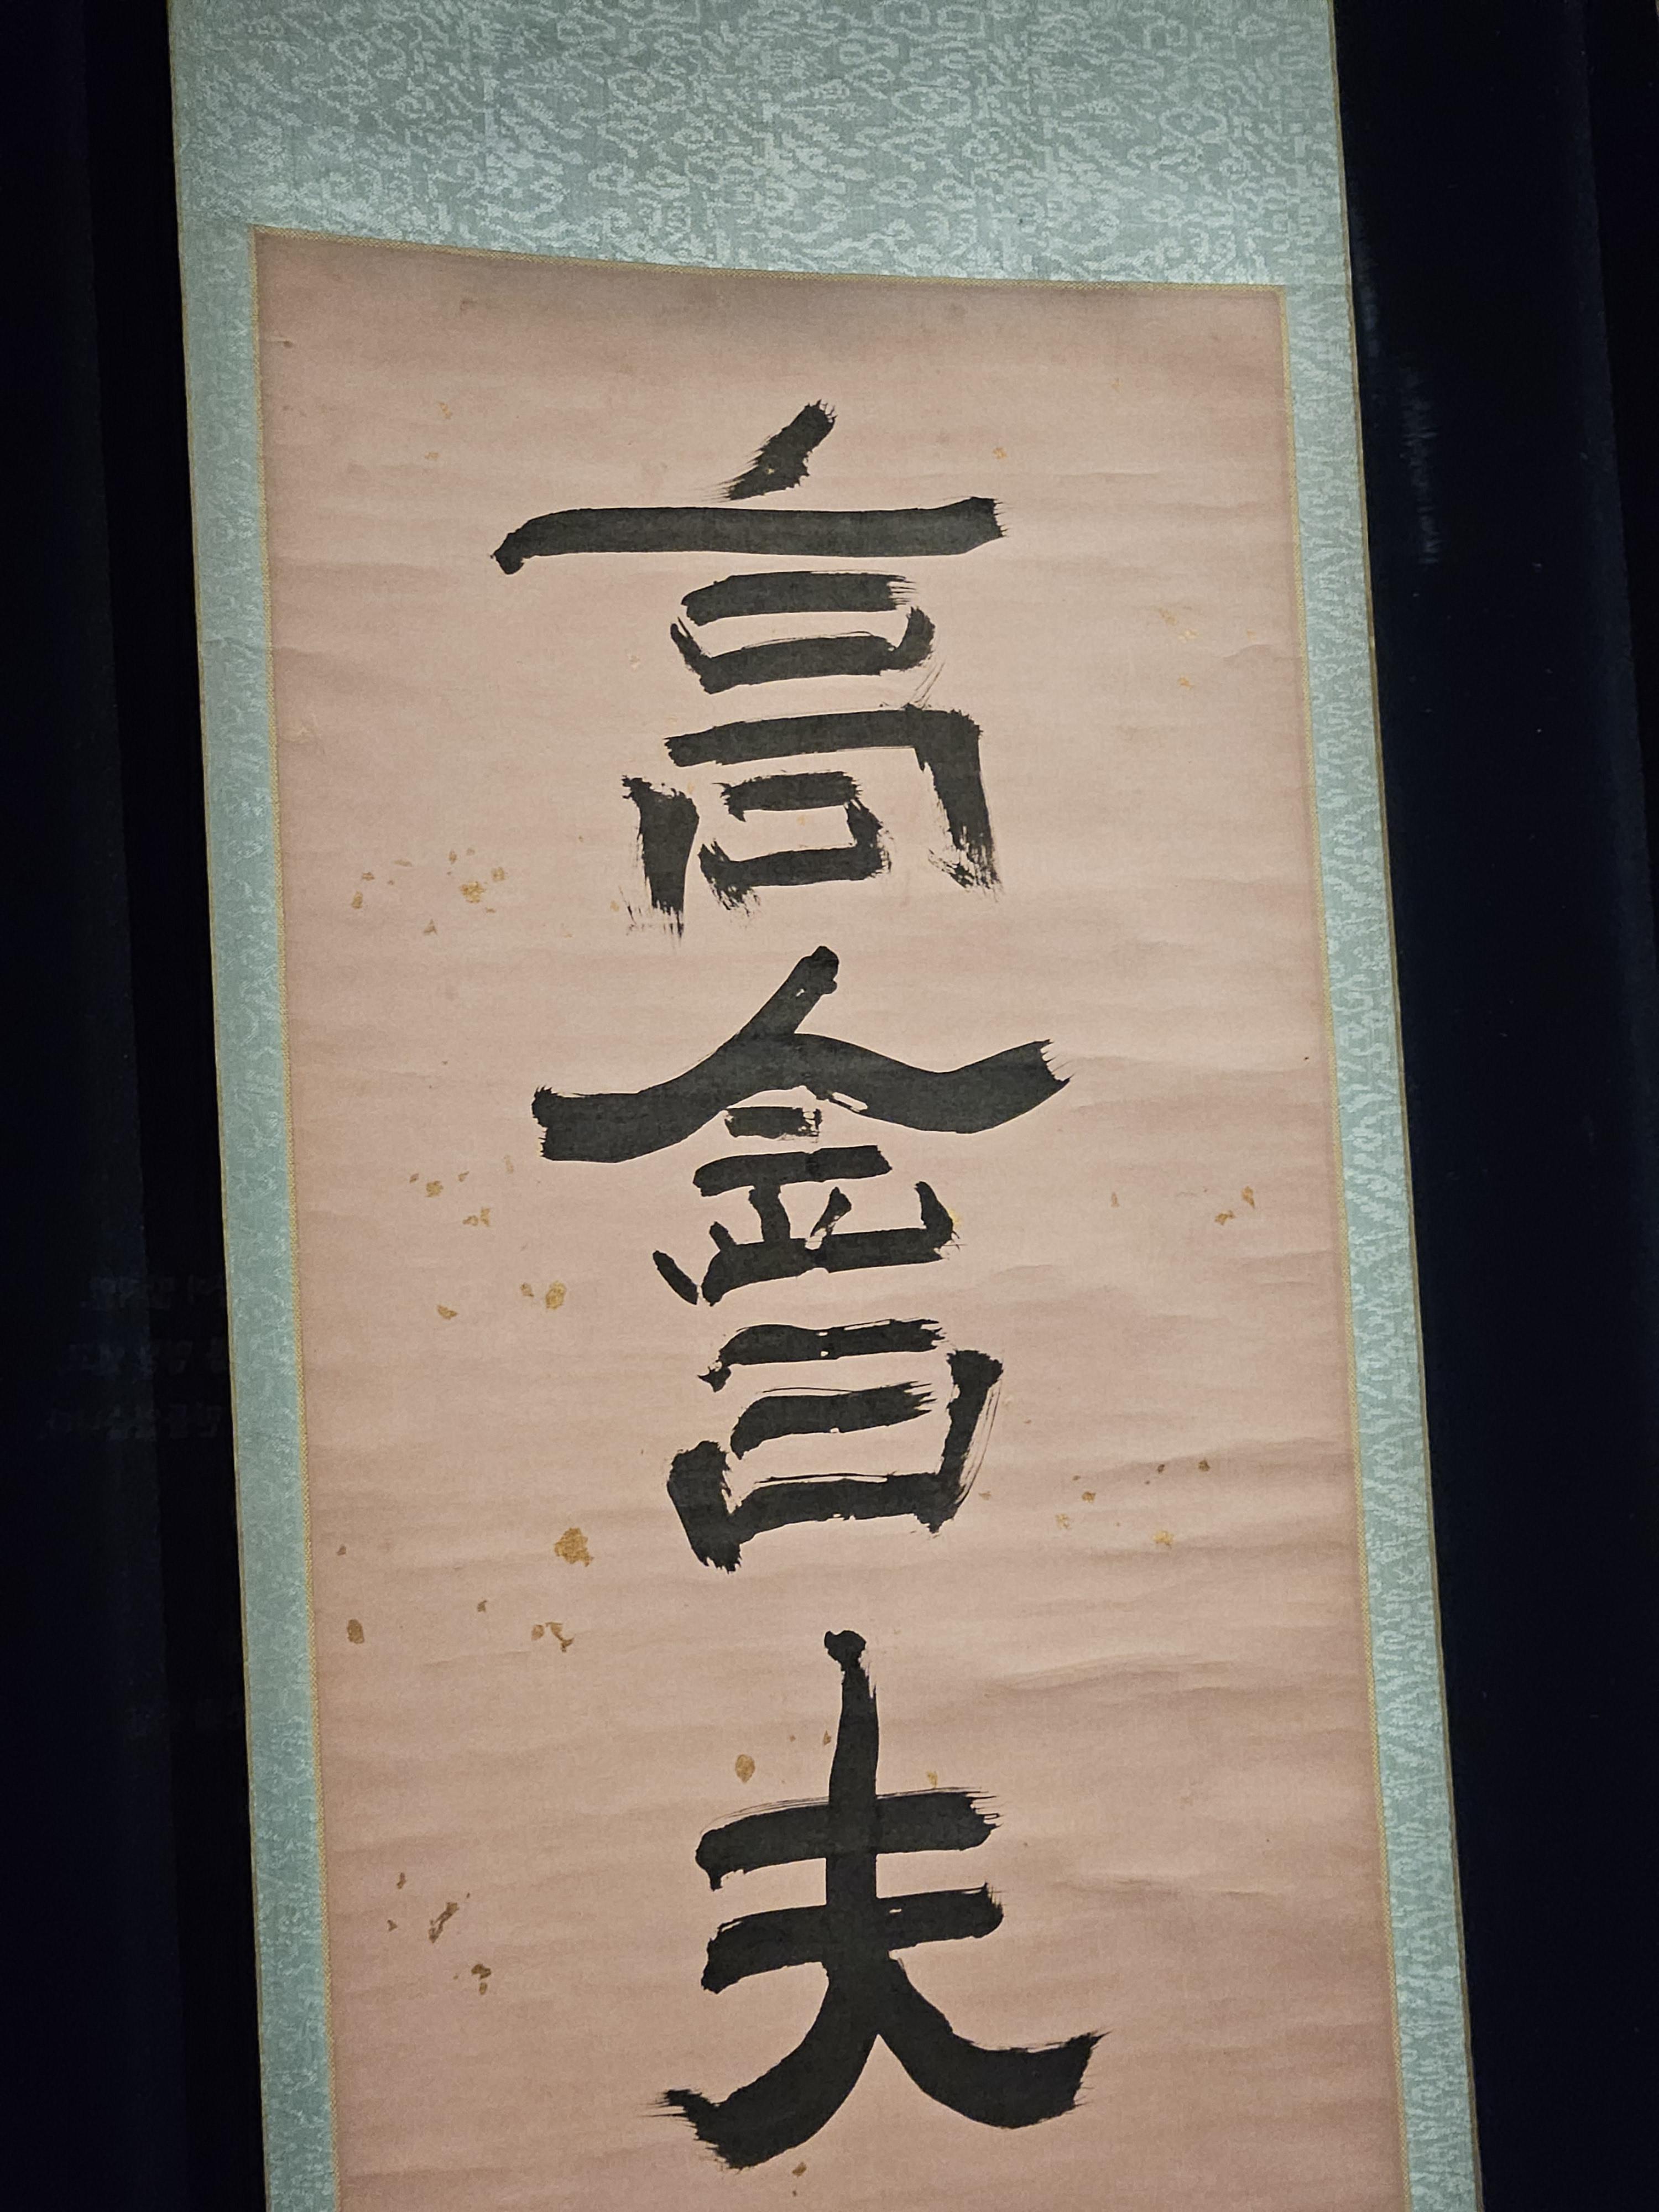 高會夫